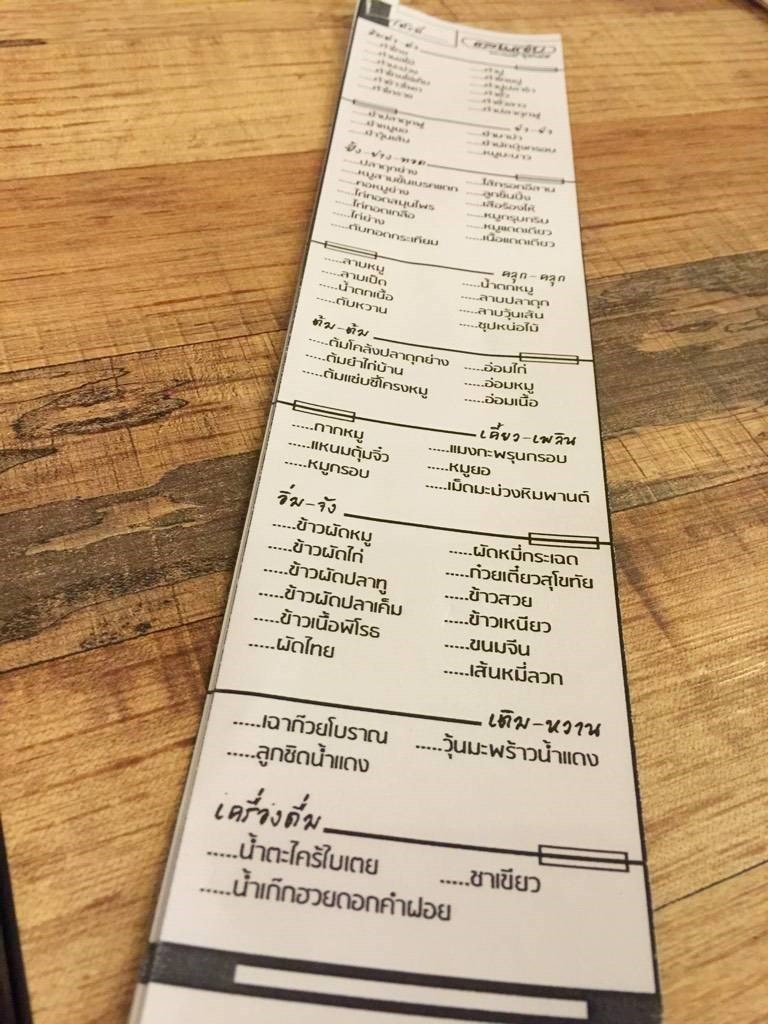 .....ตำไทย
.....ตำปู
.....ยำปลาดุกฟู
.....ยำหมูยอ
.....ยำวุ้นเส้น
.....ยำผักบุ้งกรอบ
.....หมูมะนาว
ปิ้ง-ย่าง-ทอด
.....ปลาดุกย่าง
.....หมูสามชั้นเบรคแตก
.....คอหมูย่าง
.....ไก่ทอดสมุนไพร
.....ไก่ทอดเกลือ
.....ไก่ย่าง
.....ตับทอดกระเทียม
.....ไส้กรอกอีสาน
.....ลูกชิ้นปิ้ง
.....เสือร้องไห้
.....หมูกรุบกริบ
.....หมูแดดเดียว
.....เนื้อแดดเดียว
คลุก-คลุก
.....ลาบหมู
.....ลาบเป็ด
.....น้ำตกเนื้อ
.....ตับหวาน
.....น้ำตกหมู
.....ลาบปลาดุก
.....ลาบวุ้นเส้น
.....ซุปหน่อไม้
ต้ม-ต้ม
.....ต้มโคล้งปลาดุกย่าง
.....ต้มยำไก่บ้าน
.....ต้มแซ่บซี่โครงหมู
.....อ่อมไก่
.....อ่อมหมู
.....อ่อมเนื้อ
เคี้ยว-เพลิน
.....กากหมู
.....แหนมตุ้มจิ๋ว
.....หมูกรอบ
.....แมงกะพรุนกรอบ
.....หมูยอ
.....เม็ดมะม่วงหิมพานต์
อิ่ม-จัง
.....ข้าวผัดหมู
.....ข้าวผัดไก่
.....ข้าวผัดปลาทู
.....ข้าวผัดปลาเค็ม
.....ข้าวเนื้อพิโรธ
.....ผัดไทย
.....ผัดหมี่กระเฉด
.....ก๋วยเตี๋ยวสุโขทัย
.....ข้าวสวย
.....ข้าวเหนียว
.....ขนมจีน
.....เส้นหมี่ลวก
เติม-หวาน
.....เฉาก๊วยโบราณ
.....ลูกชิดน้ำแดง
.....วุ้นมะพร้าวน้ำแดง
เครื่องดื่ม
.....น้ำตะไคร้ใบเตย
.....น้ำเก๊กฮวยดอกคำฝอย
.....ชาเขียว